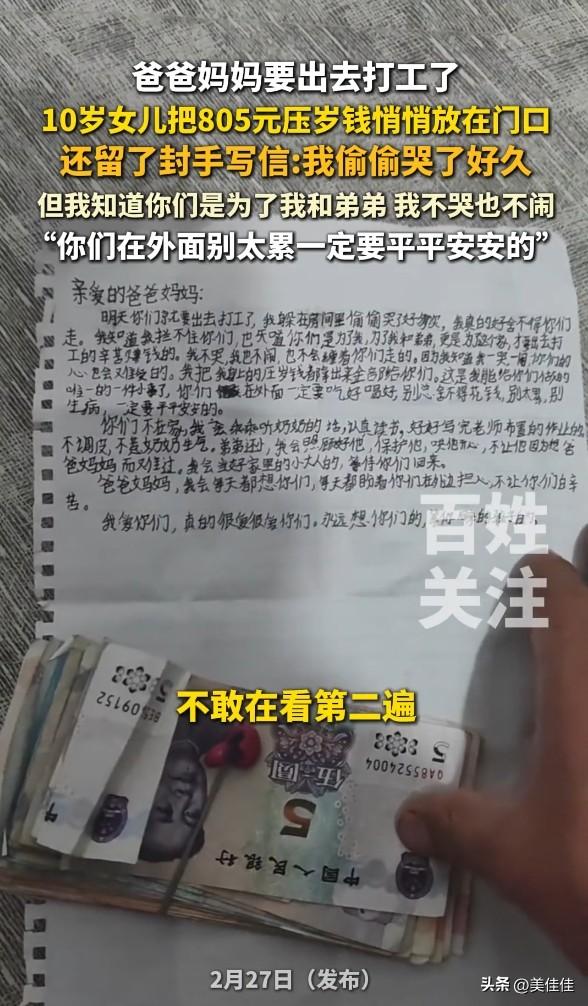 爸爸妈妈要出去打工了
10岁女儿把805元压岁钱悄悄放在门口
还留了封手写信:我偷偷哭了好久
但我知道你们是为了我和弟弟 我不哭也不闹
“你们在外面别太累一定要平平安安的”
亲爱的爸爸妈妈:
明天你们就要出去打工了,我躲在房间里偷偷哭了好多次,我真的好舍不得你们
走。我知道我拦不住你们,也知道你们是为了我,为了我和弟弟,更是为了这个家,才要出去打
工的辛苦赚钱的。我不哭,我也不闹,也不会缠着你们走的。因为我知道我一哭一闹,你们的
心也会难受的。我把我的压岁钱都拿出来全部给你们。这是我能给你们做的
唯一的一件小事了,你们在外面一定要吃好喝好,别总舍不得花钱,别太累,别
生病,一定要平平安安的。
你们不在家,我会乖乖听奶奶的话,认真读书。好好写完老师布置的作业
不调皮,不惹奶奶生气。弟弟还小,我会照顾好他,保护他,哄他开心,不让他因为想爸
爸妈妈而难过。我会当好家里的小大人的,等待你们回来。
爸爸妈妈,我会每天都想你们,每天都盼着你们,不让你们白辛
苦。
我爱你们,真的很爱很爱你们。永远想你们的,
百姓
关注
不敢在看第二遍
5
BE509152
5
QA85524004
伍圆
5
中国人民银行
2月27日(发布)
头条 @美佳佳